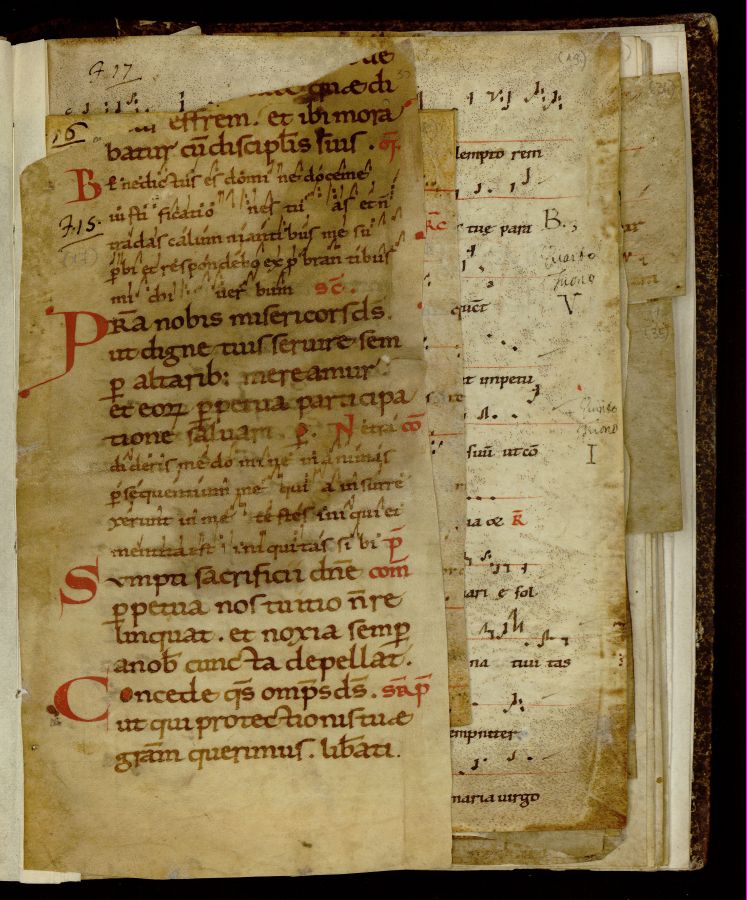 f. 17
quae di
effrem. et ibi mora
batur cū discipl̄is suis. or̄.
16
Benedictus es domine doceme
iusti ficatio nes tu as et n̄
f. 15.
tradas calumniantibus me su
p̄bi et respondebo exp̄bran tibus
mi chi uer bum sc̄.
PRĀ nobis misericors d̄s.
ut digne tuis seruire sem
p̄ altarib: mereamur
et eoꝝ p̄petua participa
tione saluari. p̄. Ne tra cō
dideris me domine in animas
p̄sequentium me qui a insurre
xerunt in me testes iniqui et
mentita est iniquitas si bi p̄
Sumpti sacrificii dn̄e com
p̄petua nos tuitio n̄ re
linquat. et noxia semp̄
a nob̄ cuncta depellat.
Concede q̄s omp̄s d̄s. sr̄ p̄
ut qui protectionis tuae
grām querimus. lib̄ati.
(18)
dempto rem
R̄c
s tue para
B. 3
Quarto
Tuono
V
quēt
t impetu
Quinto
Tuono
I
suū ut cō
na de R̄
ari e sol
na tiui tas
empniter
maria uirgo
(35)